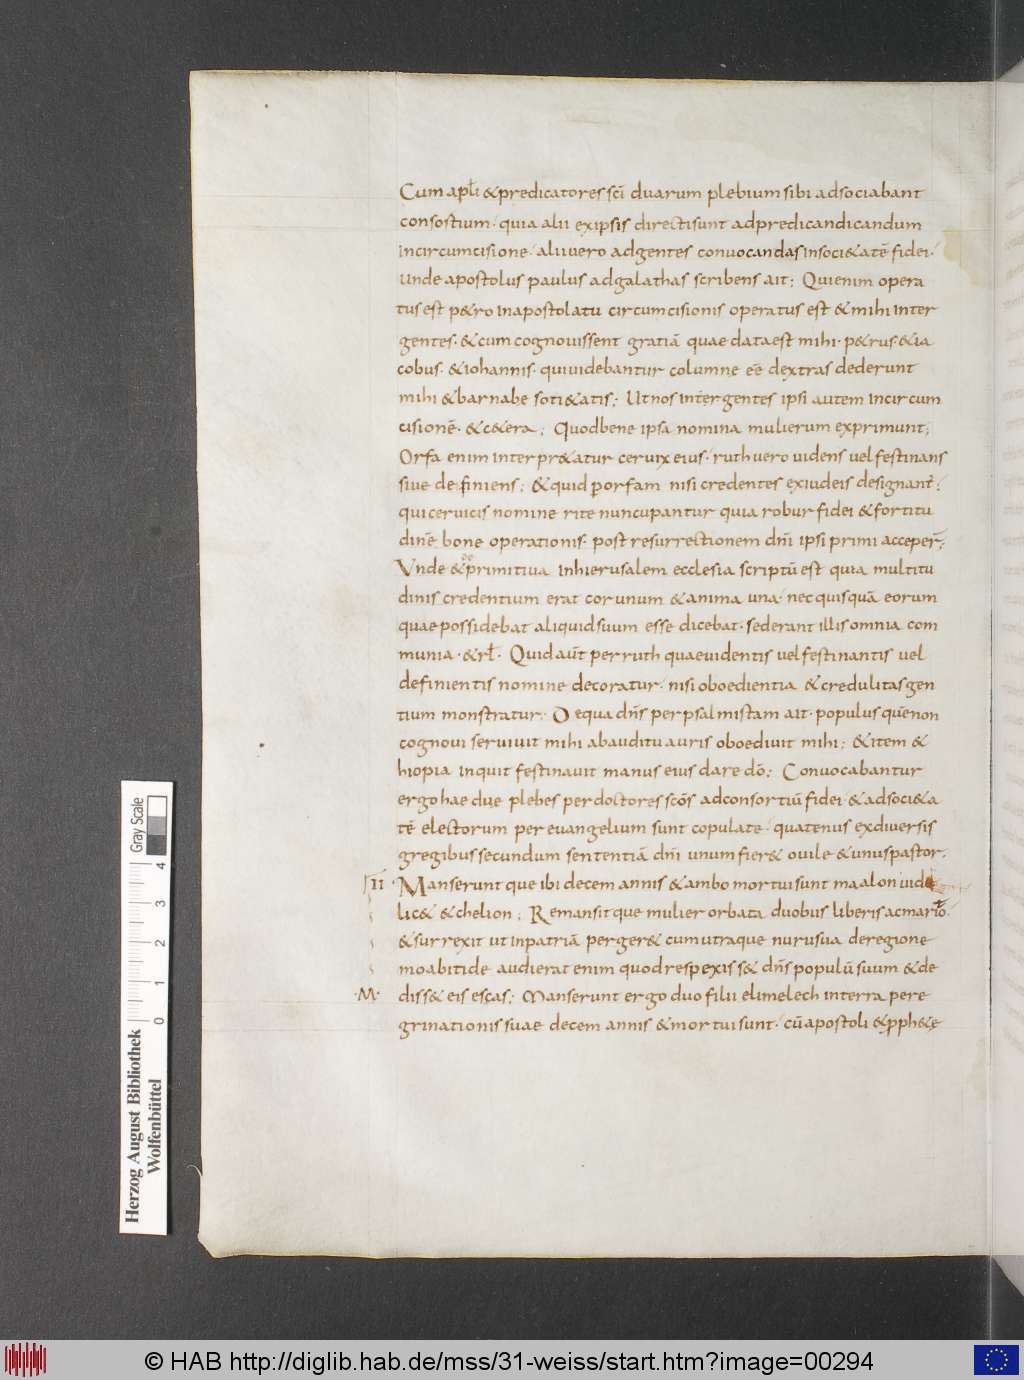 Cum apłi &predicatores sc̄i duarum plebium sibi adsociabant
consostium· quia alii exipsis directisunt adpredicandicandum
incircumcisione· aliivero adgentes convocandas insoci&atē fidei·
Unde apostolus paulus adgalathas scribens ait; Quienim opera
tus est p&ro inapostolatu circumcisionis operatus est &mihi inter
gentes· &cum cognovissent gratiā quae data est mihi· p&rus &ia
cobus· &iohannis· quividebantur columne eē dextras dederunt
mihi &barnabe soti&atis; Ut nos intergentes ipsi autem incircum
cisionē· &c&era; Quodbene ipsa nomina mulierum exprimunt;
Orfa enim interpr&atur cervix eius· ruth vero videns vel festinans
sive definiens; &quid porfam nisi credentes exiudeis designant̄;
quicervicis nomine rite nuncupantur quia robur fidei &fortitu
dinē bone operationis· post resurrectionem dn̄i ipsi primi acceper̄;
Vnde &primitiva inhierusalem ecclesia scriptū est quia multitu
de
dinis credentium erat cor unum &anima una· nec quisquā eorum
quae possidebat aliquid suum esse dicebat· sed erant illis omnia com
munia· &rł· Quid aūt per ruth quae videntis vel festinantis vel
definientis nomine decoratur· nisi oboedientia &credulitas gen
tium monstratur· De qua dn̄s per psalmistam ait· populus quē non
cognovi servivit mihi abauditu auris oboedivit mihi; &item &
hiopia inquit festinavit manus eius dare dō; Convocabantur
ergo hae due plebes per doctores scōs adconsortiū fidei &adsoci&a
tē electorum per evangelium sunt copulate· quatenus exdiversis
gregibus secundum sententiā dn̄i unum fier& ovile &unus pastor·
II Manserunt que ibi decem annis &ambo mortui sunt maalon vide
lic& &chelion; Remansit que mulier orbata duobus liberis acmarito·
&surrexit ut inpatriā perger& cum utraque nurusua deregione
moabitide audierat enim quod respexiss& dn̄s populū suum &de
·M· diss& eis escas; Manserunt ergo duo filii elimelech interra pere
grinationis suae decem annis &mortui sunt· cū apostoli &pph&ę
Herzog August Bibliothek
Wolfenbüttel
Gray Scale
0 1 2 3 4
© HAB http://diglib.hab.de/mss/31-weiss/start.htm?image=00294